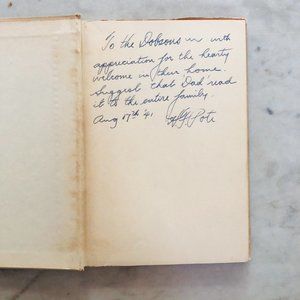 To the Dobsons in with
appreciation for the hearty
welcome in their home.
Suggest that Dad read
it to the entire family.
Aug 17th '41 Pote